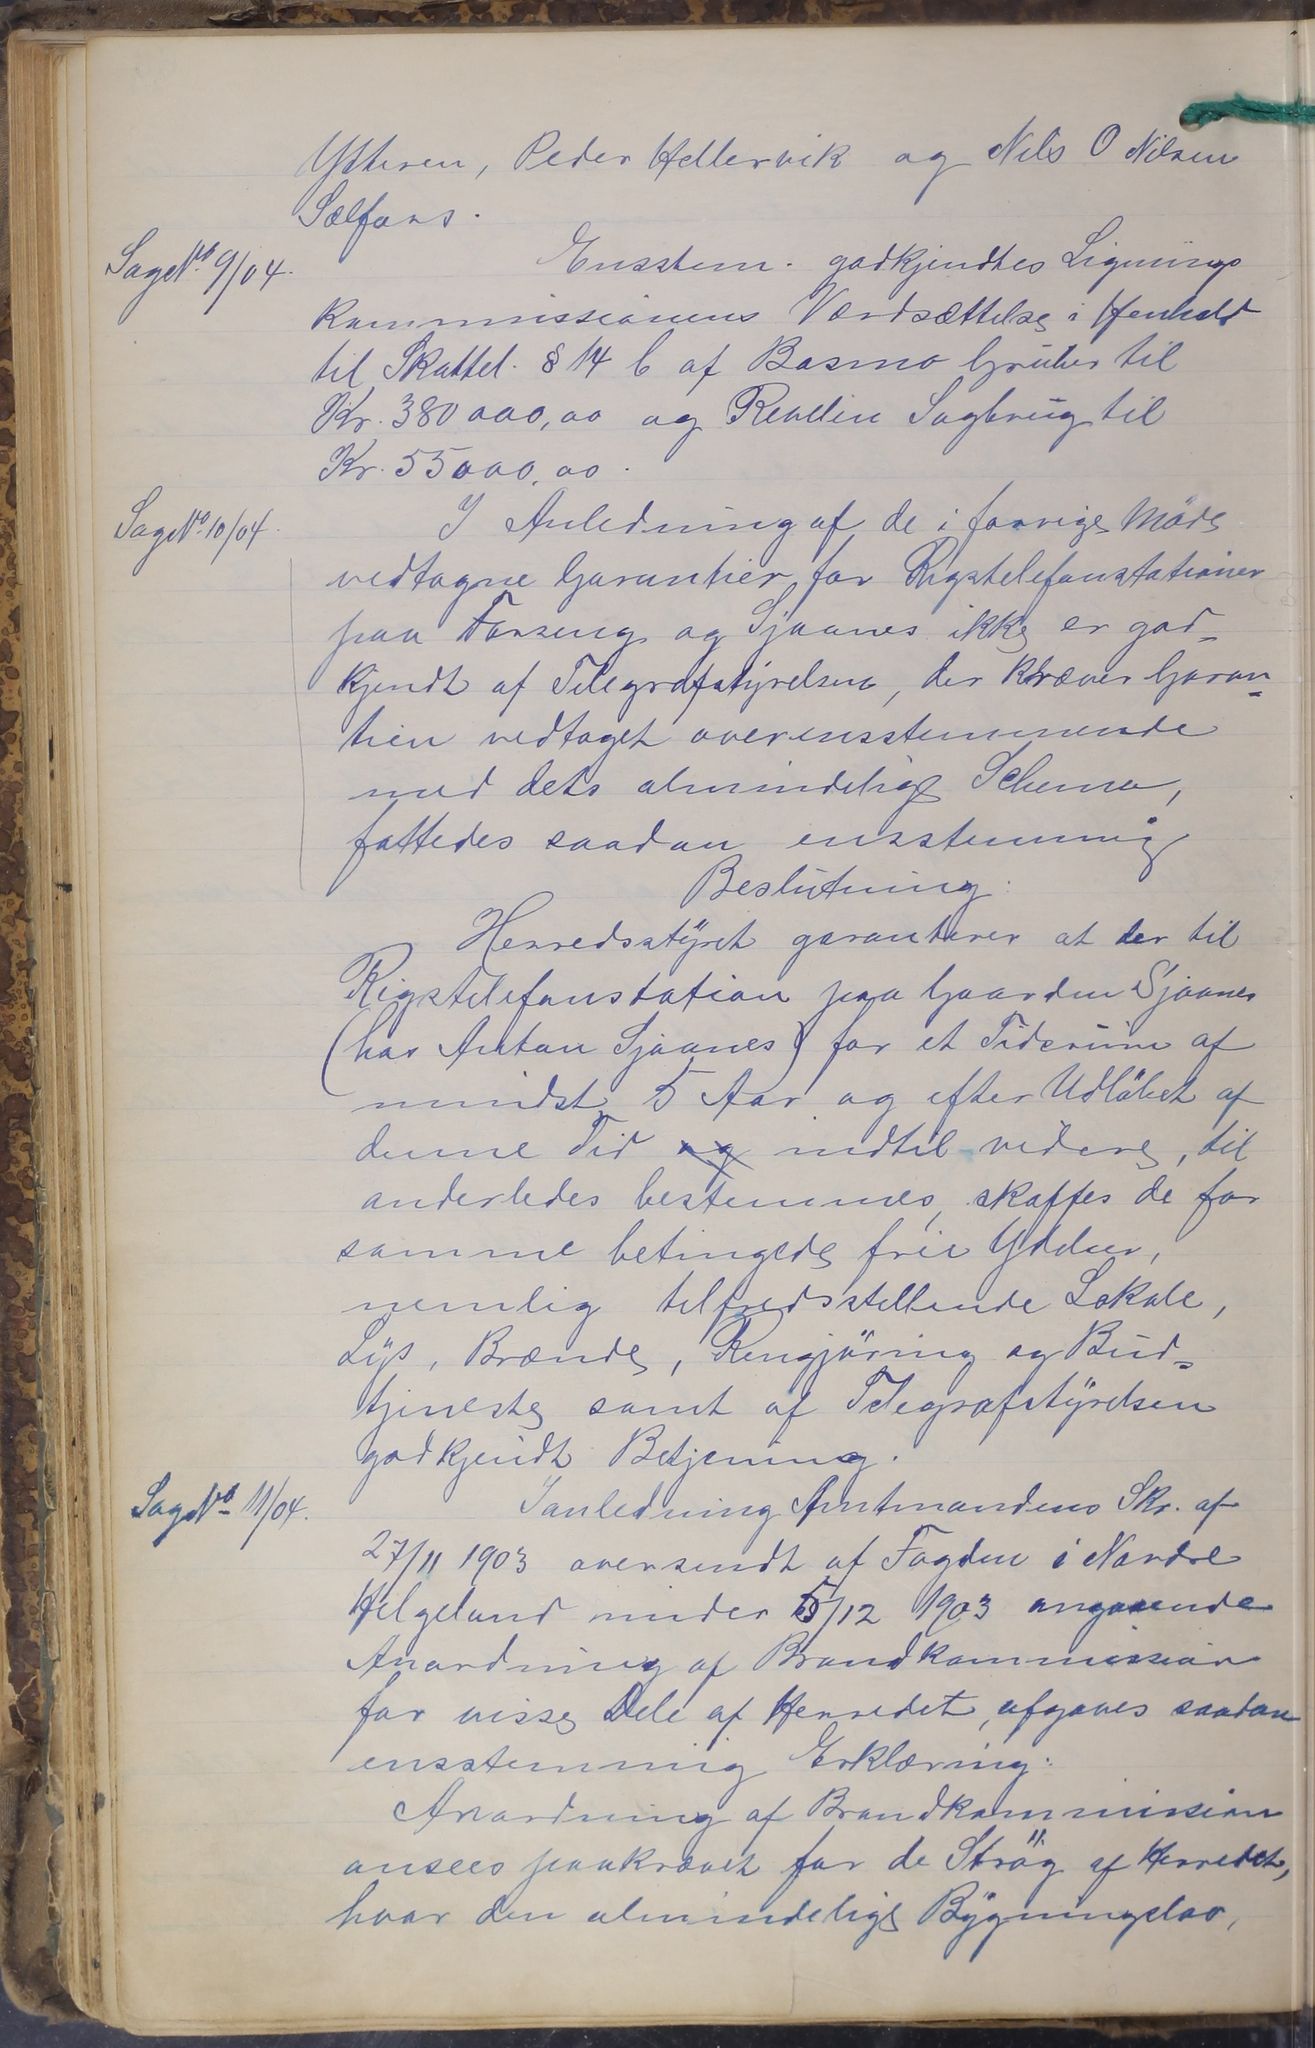 Ytteren, Peder Hellervik og Nils O Nilsen
Sælfors.
Sag No 9/04. Ensstem. godkjendtes Lignings
kommissionens Værdsættelse i Henhold
til Skattel. § 14 b af Basmo Gruber til
Kr. 380 000,00 og Revelen Sagbrug til
Kr. 55000,00.
Sag No 10/04. I Anledning af de i forrige Møde
vedtagne Garantier for Rigstelefonstationer
paa Forseng og Sjaanes ikke er god-
kjendt af Telegrafstyrelsen, der kræver Garan-
tien vedtaget overensstemmende
med dets almindelige Schema,
fattedes saadan ensstemmig
Beslutning:
Herredsstyret garanterer at der til
Rigstelefonstation paa Gaarden Sjaanes
(hos Anton Sjaanes) for et Tidsrum af
mindst 5 Aar og efter Udløbet af
denne Tid og indtil videre, til
anderledes bestemmes, skaffes de for
samme betingede frie Ydelser,
nemlig tilfredsstillende Lokale,
Lys, Brænde, Rengjøring og Bud-
tjeneste samt af Telegrafstyrelsen
godkjendt Betjening.
Sag No 11/04. I anledning Amtmandens Skr. af
27/11 1903 oversendt af Fogden i Nordre
Helgeland under 5/12 1903 angaaende
Anordning af Brandkommission
for visse Dele af Herredet, afgaves saadan
ensstemmig Erklæring:
Anordning af Brandkommission
ansees paakrævet for de Strøg af Herredet,
hvor den almindelige Bygningslov,